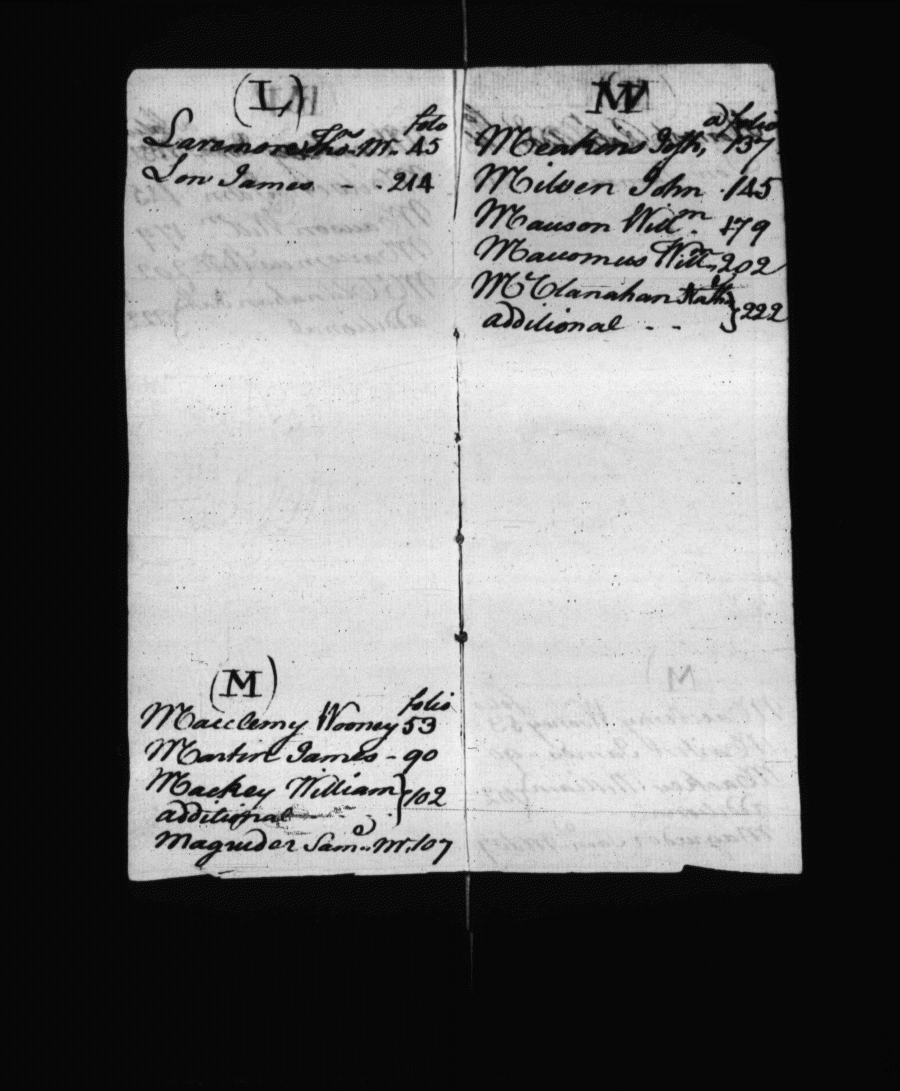 (L)
folo
Laremore Thos. M. 45
Lon James - - 214
(M)
folio
Macclemy Wooney 53
Martin James - 90
Mackey William } 102
additional - - -
Magruder Saml. M. 107
M
a folio
Meakins Josh, 137
Milven John . 145
Mauson Willm. 179
Willm. 202
McClanahan } 222
additional - -